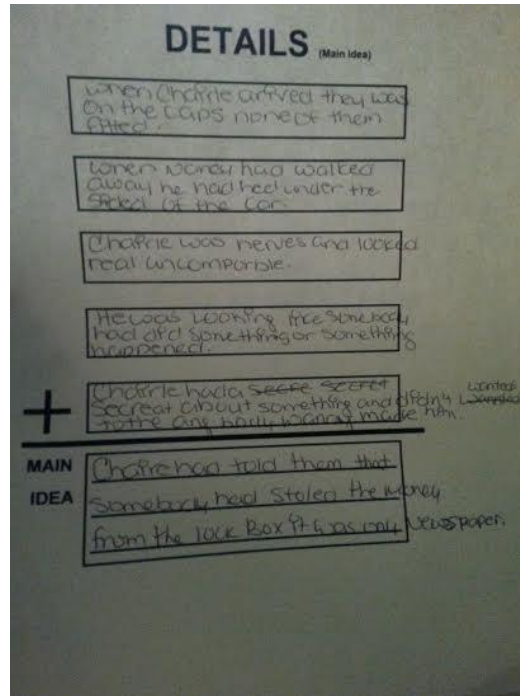 DETAILS (Main Idea)
When Chairle arived they was
on the caps none of them
fitted.
When Nancy had walked
away he had hed under the
of the car.
Chairle was nerves and looked
real uncomporible.
He was looking like somebody
had did something or something
happened.
Chairle had a secre secret
secreat about something and didn't wanted
to the any body
+
MAIN IDEA
Chaire had told them that
somebody had stoled the money
from the lock Box it was only Newspaper.